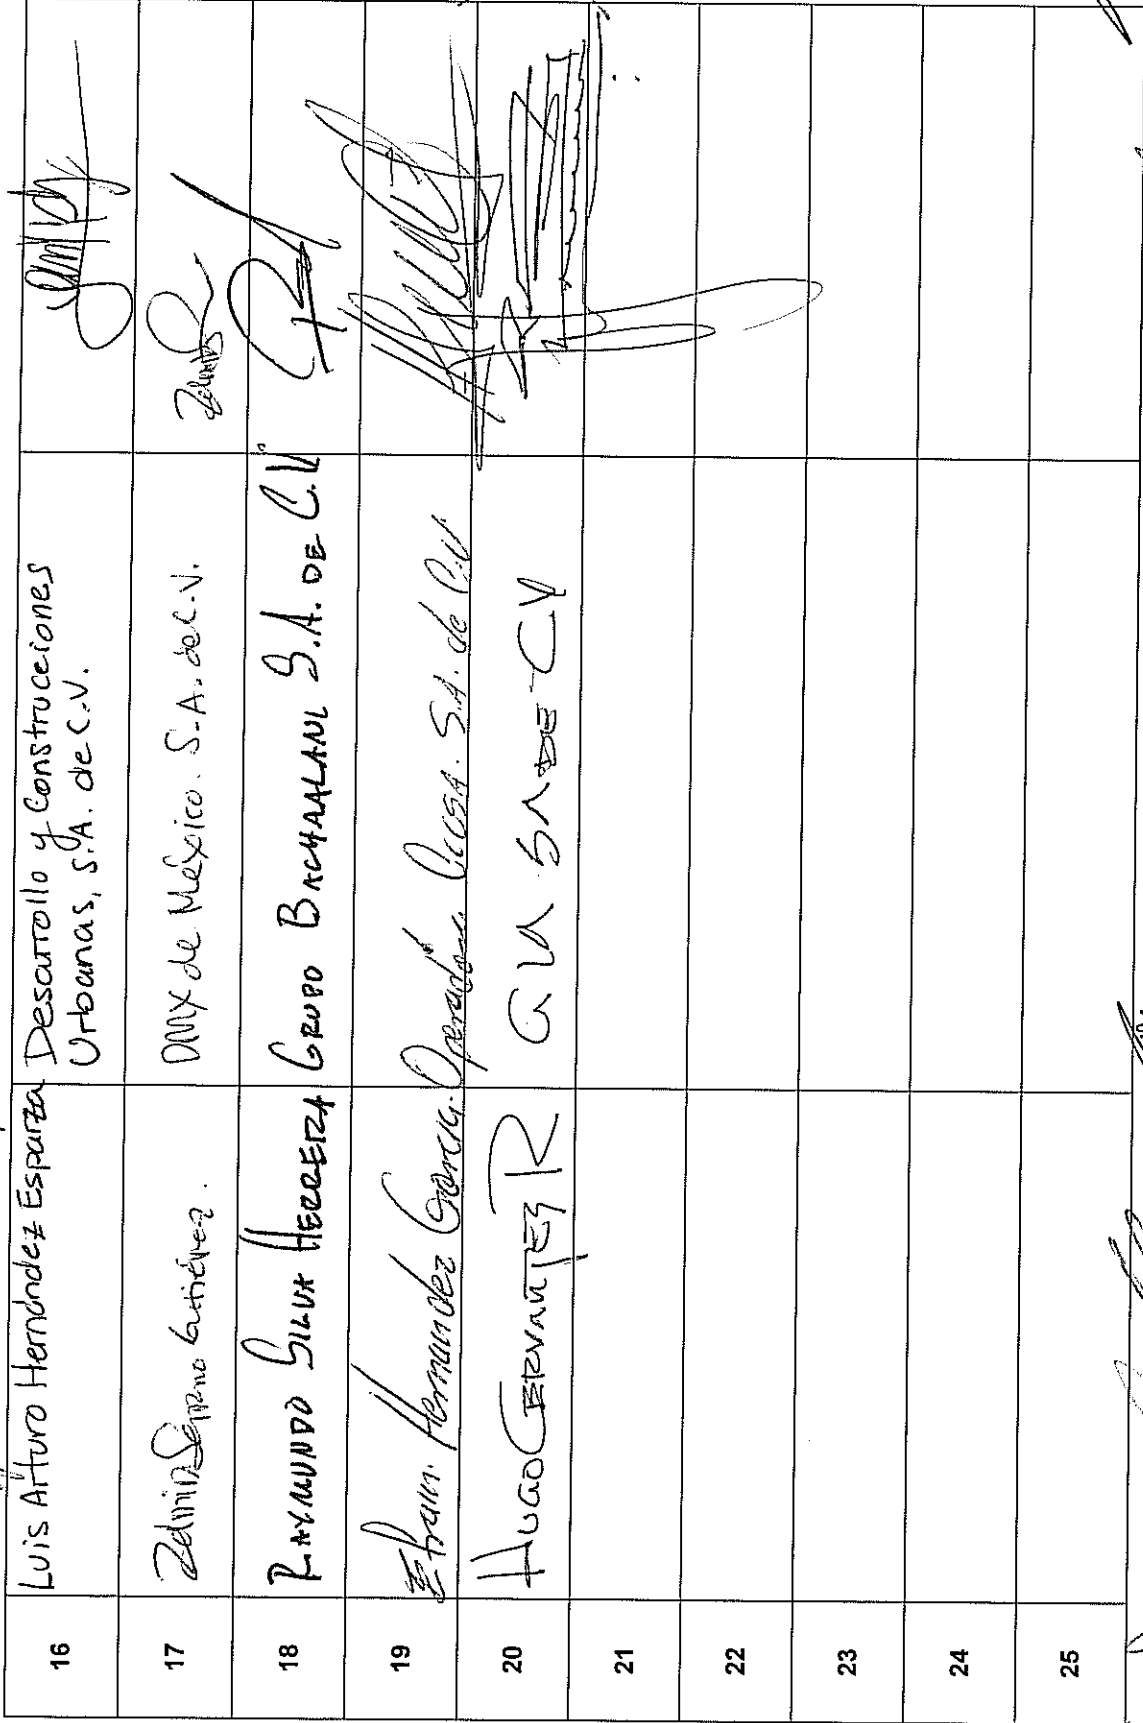 16 Luis Arturo Hernández Esparza Desarrollo y Construcciones
Urbanas, S.A. de C.V.
17 Serrano Gutiérrez. DMX de México. S.A. de C.V.
18 RAYMUNDO SILVA HERRERA GRUPO BACHAALANI S.A. DE C.V
19 Efrain Hernandez Garcia. Operadora CICSA. S.A. de C.V
20 HUGO CERVANTES R GIA SA DE CV
21
22
23
24
25